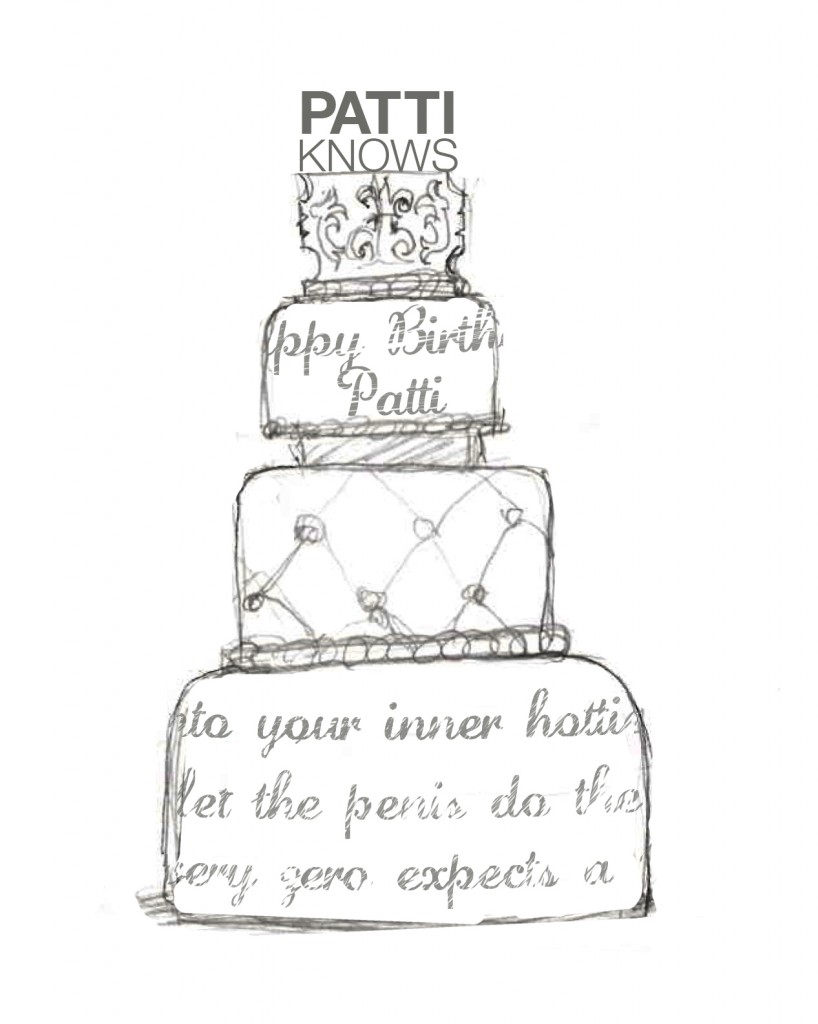 PATTI
KNOWS
ppy Birth
Patti
nto your inner hottie
let the penis do the
very zero expects a